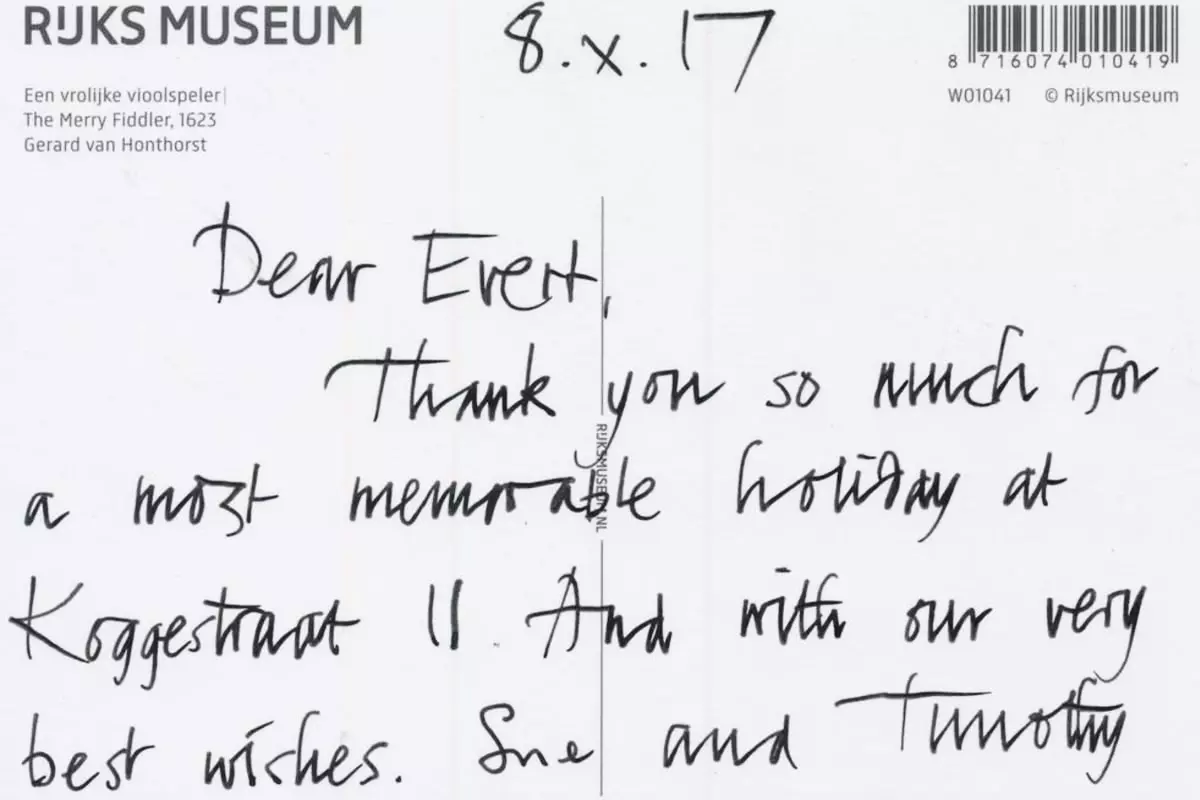 RIJKS MUSEUM
8.x.17
8 716074 010419
W01041 © Rijksmuseum
Een vrolijke vioolspeler|
The Merry Fiddler, 1623
Gerard van Honthorst
Dear Evert,
Thank you so much for
a most memorable holiday at
Koggestraat 11. And with our very
best wishes. Sue and Timothy
RIJKSMUSEUM.NL